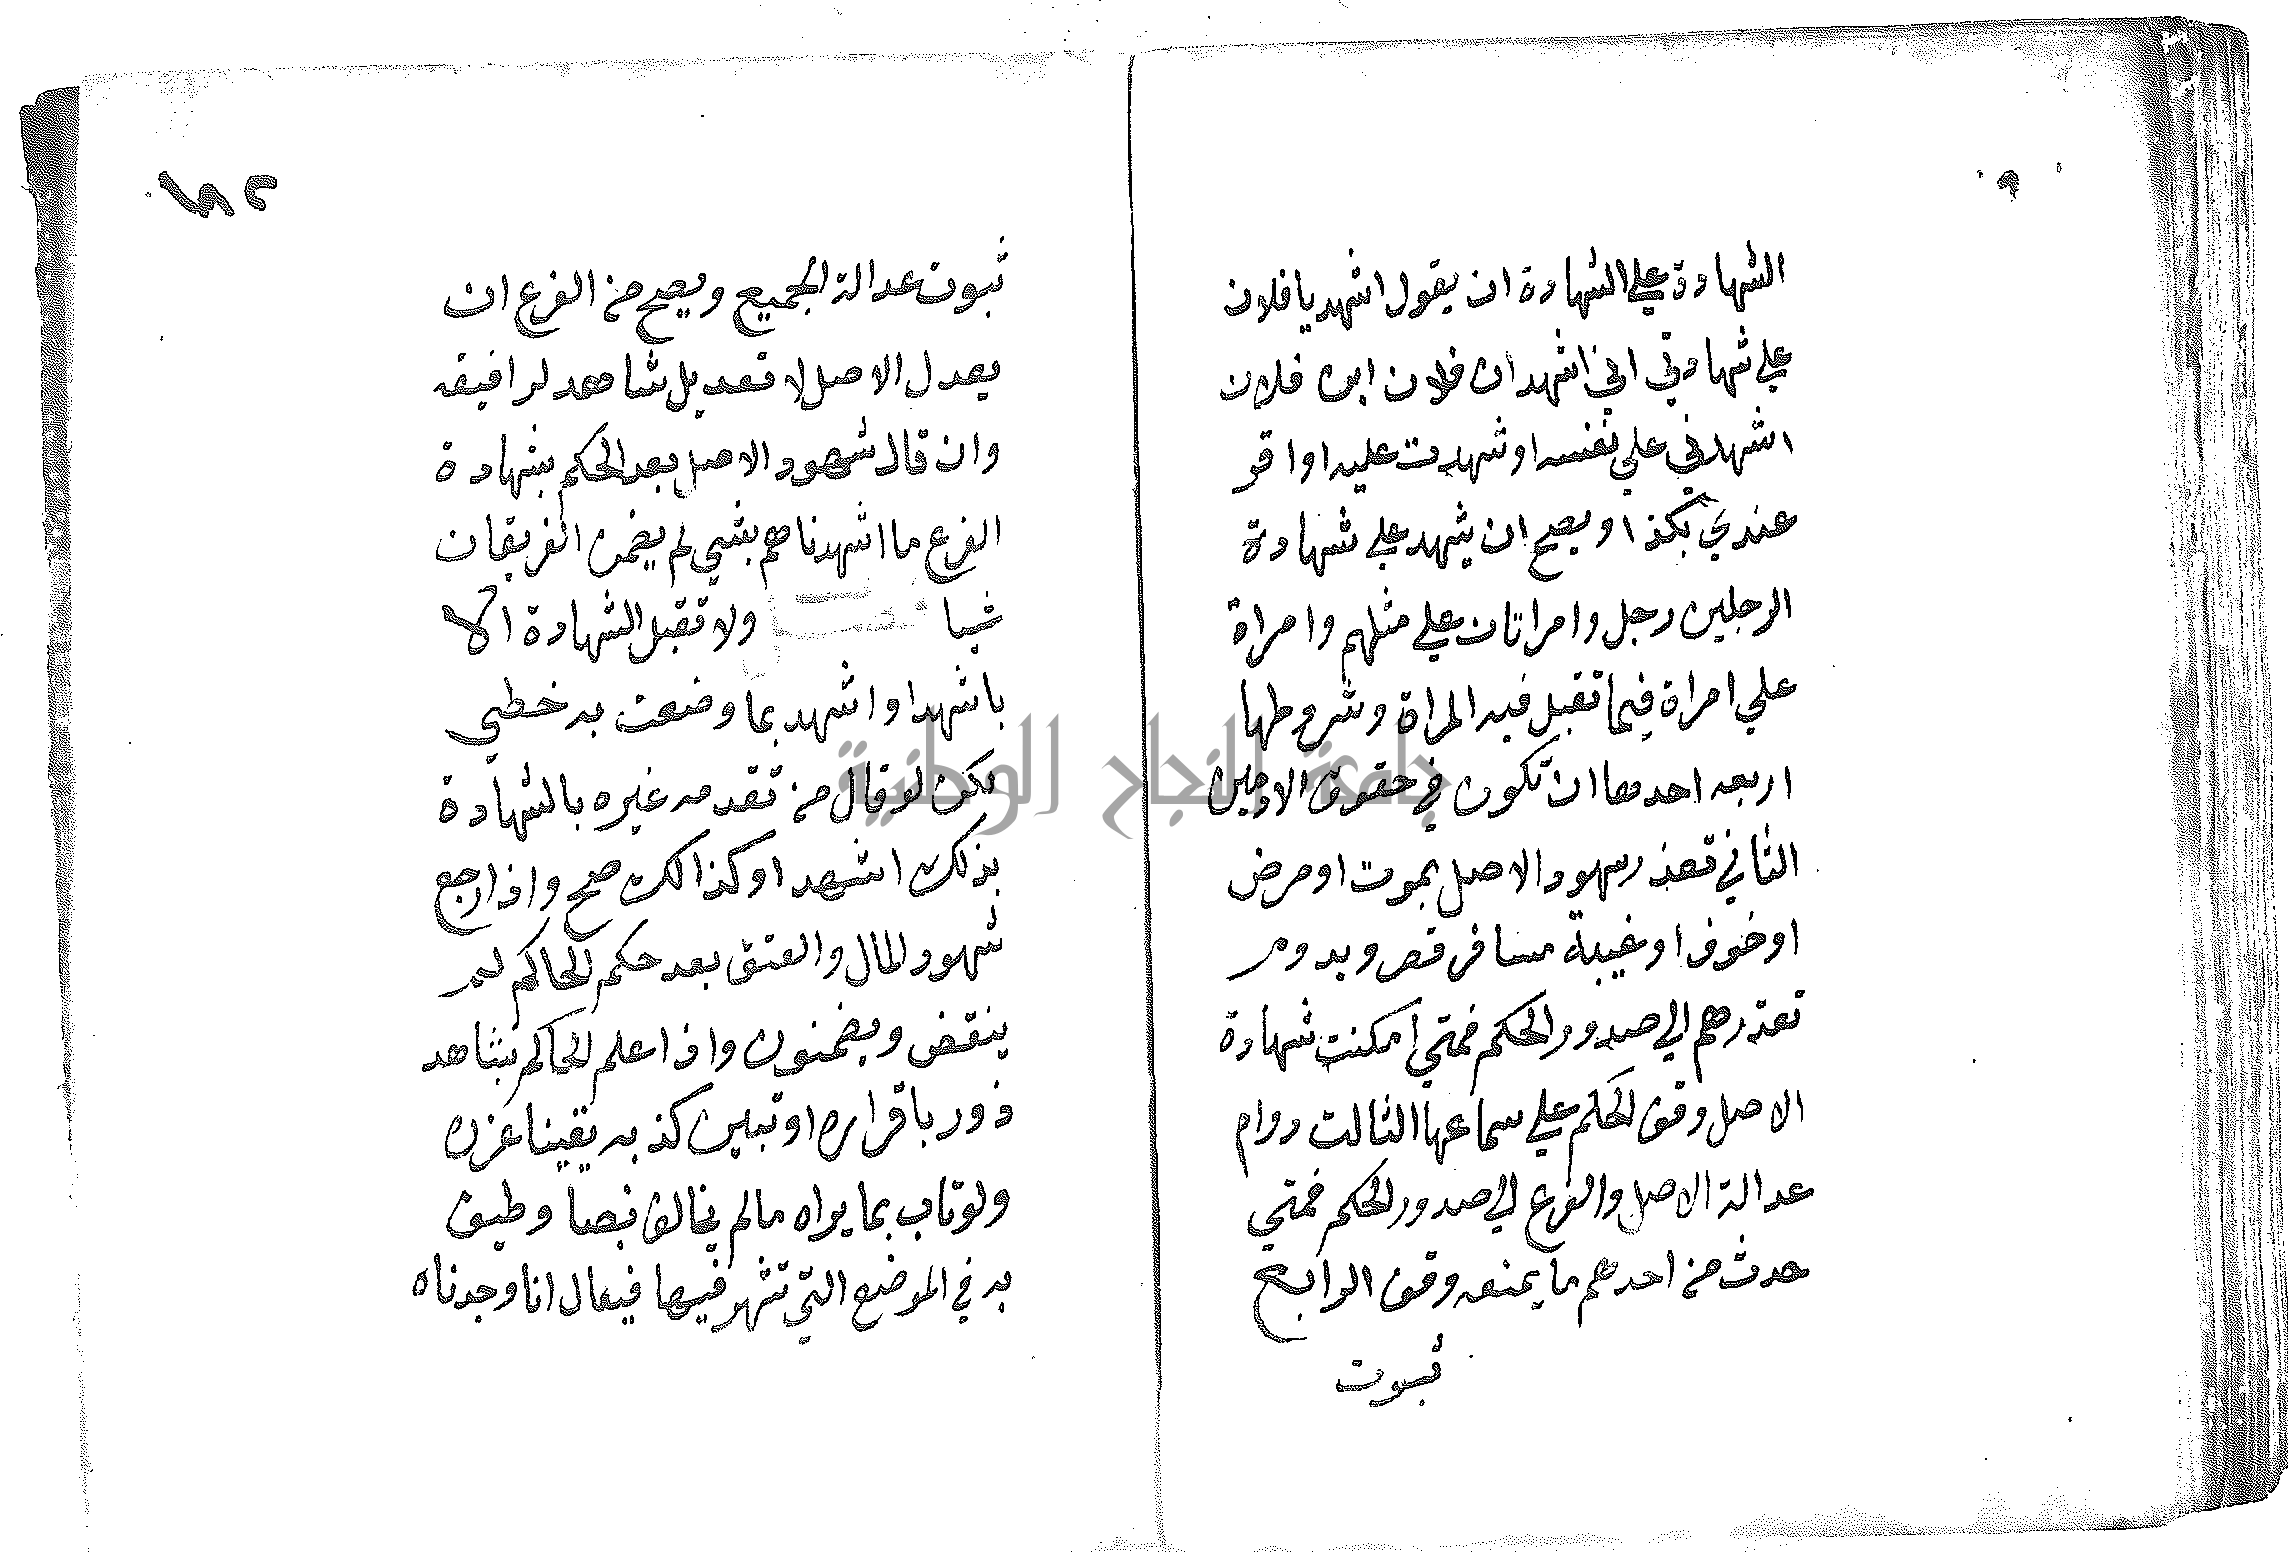 الشهادة علي الشهادة ان يقول اشهد يا فلان
علي شهادتي اني اشهد ان فلان ابن فلان
اشهدني علي نفسه او شهدت عليه او اقر
عندي بكذا ويصح ان يشهد علي شهادة
الرجلين رجل وامراتان علي مثلهم وامراة
علي امراة فيما تقبل فيه المراة وشروطها
اربعه احدها ان تكون في حقوق الادميين
الثاني تعذر شهود الاصل بموت او مرض
او خوف او غيبة مسافر قصر ويدوم
تعذرهم الي صدور الحكم فمتي امكنت شهادة
الاصل وقف الحكم علي سماعها الثالث دوام
عدالة الاصل والفرع الي صدور الحكم فمتي
حدث من احدهم ما يمنعه وقف الرابع
ثبوت
١٨٢
ثبوت عدالة الجميع ويصح من الفرع ان
يعدل الاصل لا تعديل شاهد لرافيقه
وان قال شهود الاصل بعد الحكم بشهادة
الفرع ما اشهدناهم بشي لم يضمن الفريقان
شيا ولا تقبل الشهادة الا
باشهد او اشهد بما وضعت به خطي
لكن لو قال من تقدمه غيره بالشهادة
بذلك اشهد او كذالك صح واذا رجع
شهود المال والعتق بعد حكم الحاكم لم
ينقض ويضمنون واذا علم الحاكم بشاهد
زور باقراره او تبين كذبه يقينا عزره
ولو تاب بما يراه مالم يخالف نصا وطيف
به في الموضع التي تشهر فيها فيقال انا وجدناه
جامعة النجاح الوطنية